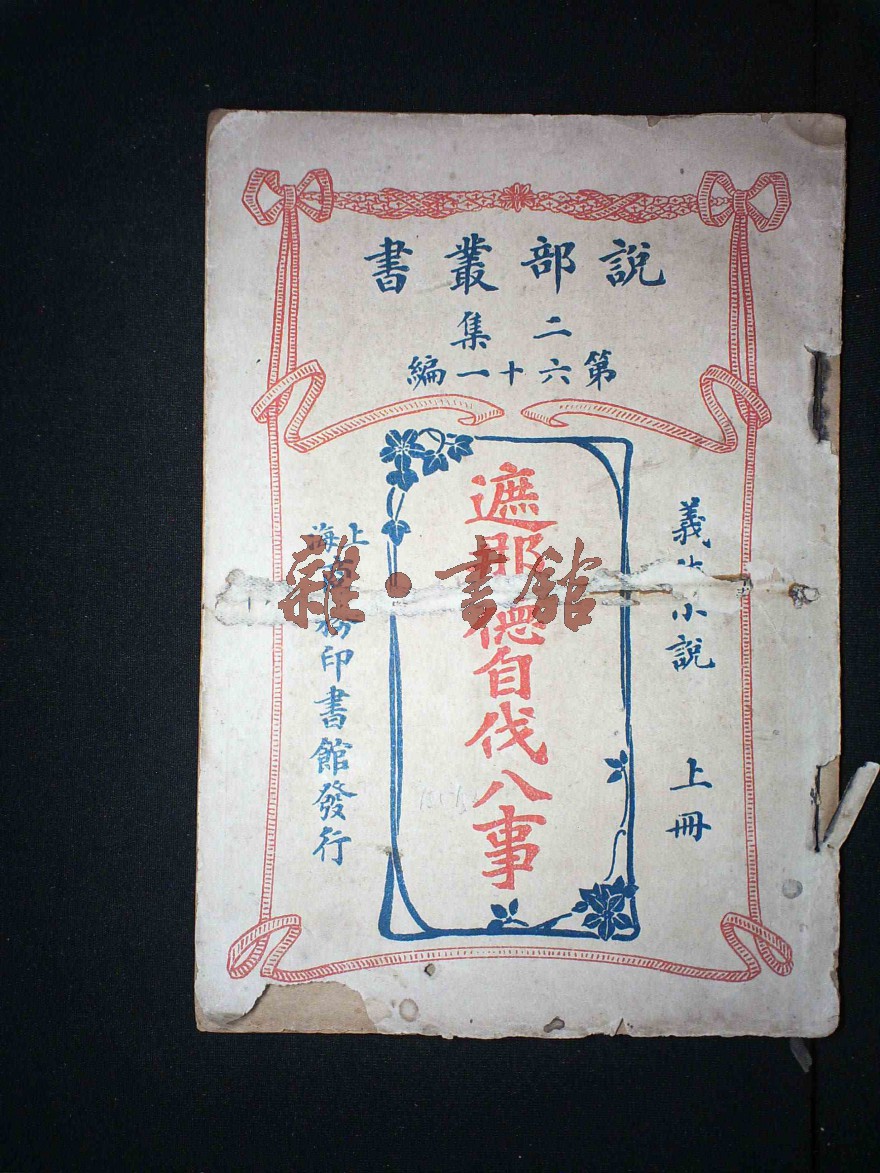 說部叢書
二集
第六十一編
義俠小說 上冊
遮那德自伐八事
上海商務印書館發行
雜·書館